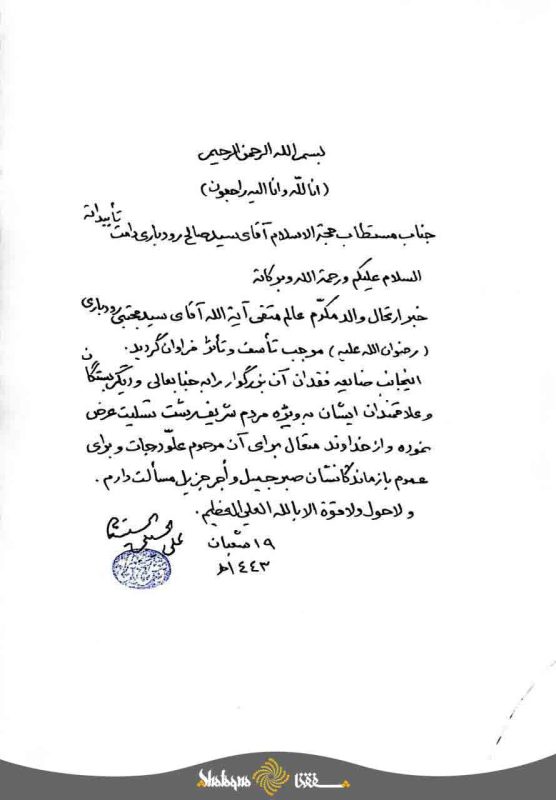 بسم الله الرحمن الرحیم
(انا لله وانا الیه راجعون)
جناب مستطاب حجة الاسلام آقای سید صالح رودباری دامت تأییداته
السلام علیکم ورحمة الله وبرکاته
خبر ارتحال والد مکرّم عالم متقی آیة الله آقای سید مجتبی رودباری
(رضوان الله علیه) موجب تأسف وتأثر فراوان گردید.
اینجانب ضایعه فقدان آن بزرگوار را به جنابعالی و دیگر بستگان
و علاقمندان ایشان به ویژه مردم شریف رشت تسلیت عرض
نموده و از خداوند متعال برای آن مرحوم علوّ درجات و برای
عموم بازماندگانشان صبر جمیل وأجر جزیل مسألت دارم.
ولاحول ولاقوة الا بالله العلي العظيم.
علي الحسيني السيستاني
١٩ شعبان
١٤٤٣ ﻫ
شفقنا
Shafaqna